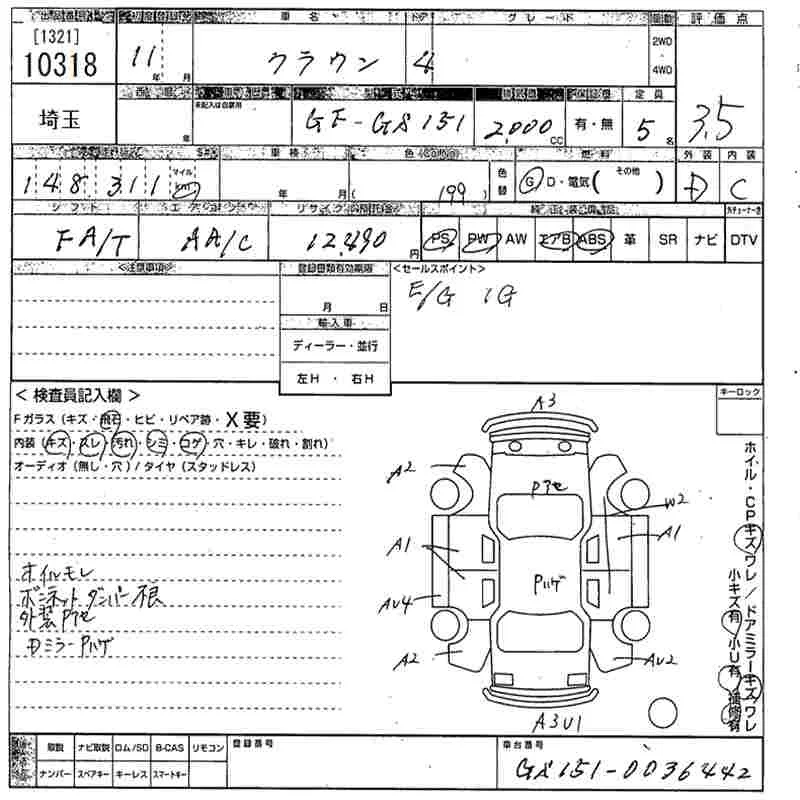 出品店番号 初度登録年月 車名 ドア グレード 駆動 評価点
[1321]
10318
11 年 月
クラウン
4
2WD
・
4WD
埼玉
年
未記入は自家用
型式
GF-GS151
排気量
2,000 CC
有・無
定員
5 名
3.5
外装 内装
D C
148,311
マイル
km
車検
年 月
色(Color)
( 199 )
色替
燃料
G・D・電気( その他 )
シフト
FA/T
エアコン
AA/C
リサイクル預託金
12,490 円
PS PW AW エアB ABS 革 SR ナビ DTV
<注意事項>
登録書類有効期限
月 日
輸入車
ディーラー・並行
左H ・ 右H
<セールスポイント>
E/G 1G
キーロック
< 検査員記入欄 >
Fガラス(キズ・飛石・ヒビ・リペア跡・X要)
内装(キズ・スレ・汚れ・シミ・コゲ・穴・キレ・破れ・割れ)
オーディオ(無し・穴)/タイヤ(スタッドレス)
オイルモレ
ボンネットダンパー不良
外装Pアセ
Dミラー Pハゲ
A3
A2
Pアセ
W2
A1
A1
Pハゲ
AU4
A2
AU2
A3U1
ホイル・CPキズワレ/ドアミラーキズワレ
小キズ有 小U有 補修有
取説 ナビ取説 ロム/SD B-CAS リモコン
ナンバー スペアキー キーレス スマートキー
登録番号
車台番号
GS151-0036442